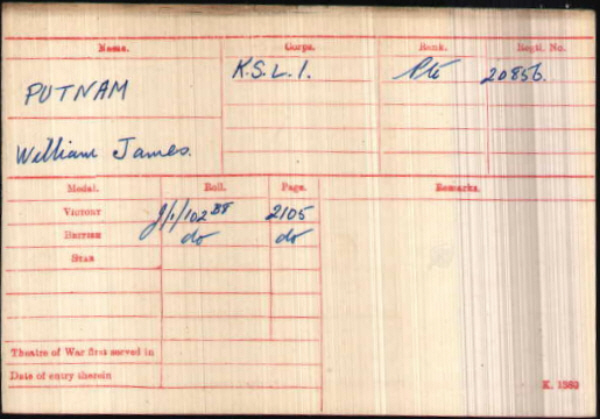 Name. Corps. Rank. Regtl. No.
PUTNAM K.S.L.I. Pte 20856.
William James.
Medal. Roll. Page. Remarks.
VICTORY J/1/102 B8 2105
BRITISH do do
STAR
Theatre of War first served in
Date of entry therein
K. 1380